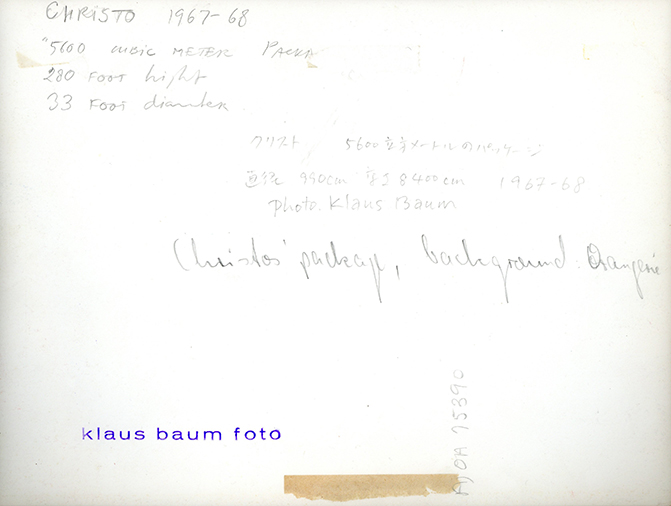 CHRISTO 1967-68
"5600 CUBIC METER PACKA
280 FOOT hight
33 FOOT diameter
クリスト 5600立方メートルのパッケージ
直径 990cm 高さ 8400cm 1967-68
photo. Klaus Baum
Christos' package, background: Orangerie
klaus baum foto
A)OA 75390